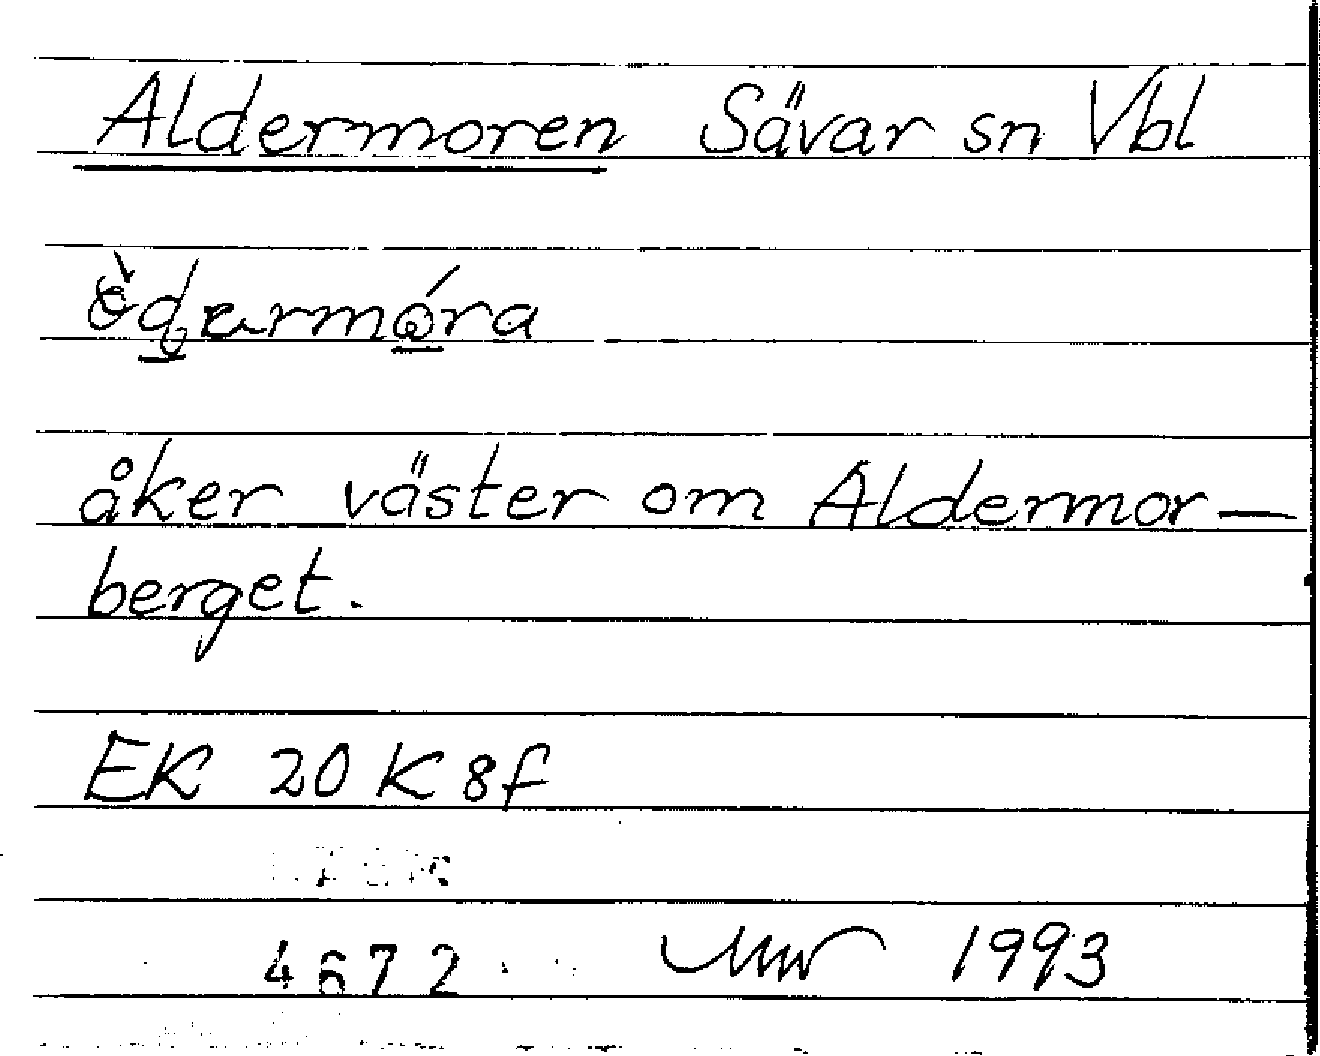 Aldermoren Sävar sn Vbl
åker väster om Aldermor—
berget.
EK 20 K 8f
4672 1993